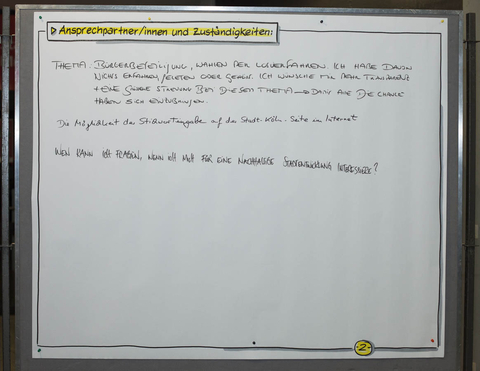 ▷ Ansprechpartner/innen und Zuständigkeiten:
THEMA: BÜRGERBETEILIGUNG, WAHLEN PER LOSVERFAHREN. ICH HABE DAVON
NICHTS ERFAHREN/GELESEN ODER GESEHEN. ICH WÜNSCHE MIR MEHR TRANSPARENZ
+ EINE STREUUNG BEI DIESEM THEMA → DAMIT ALLE DIE CHANCE
HABEN SICH EINZUBRINGEN.
Die Möglichkeit der Stichwortangabe auf der Stadt-Köln-Seite im Internet
WEN KANN ICH FRAGEN, WENN ICH MICH FÜR EINE NACHHALTIGE STADTENTWICKLUNG INTERESSIERE?
-2-